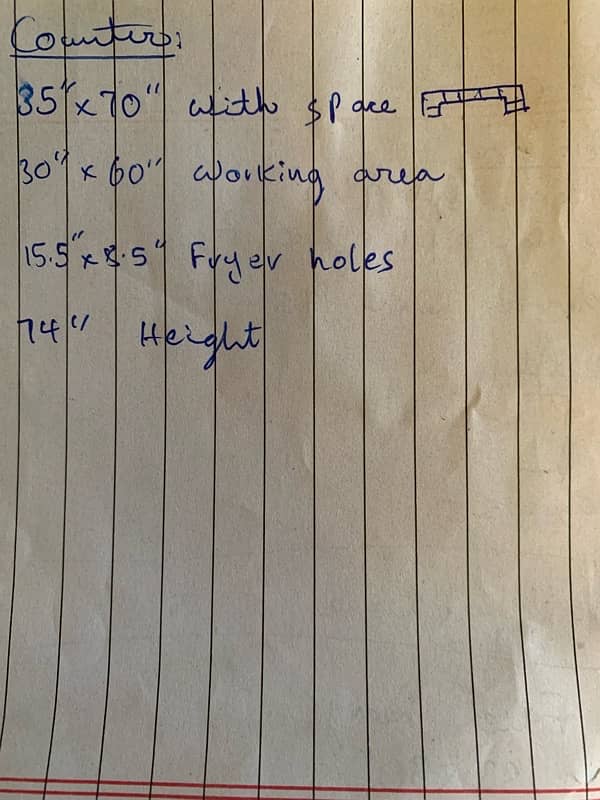 Counter:
35" x 70" with space
30" x 60" working area
15.5" x 8.5" Fryer holes
74" Height